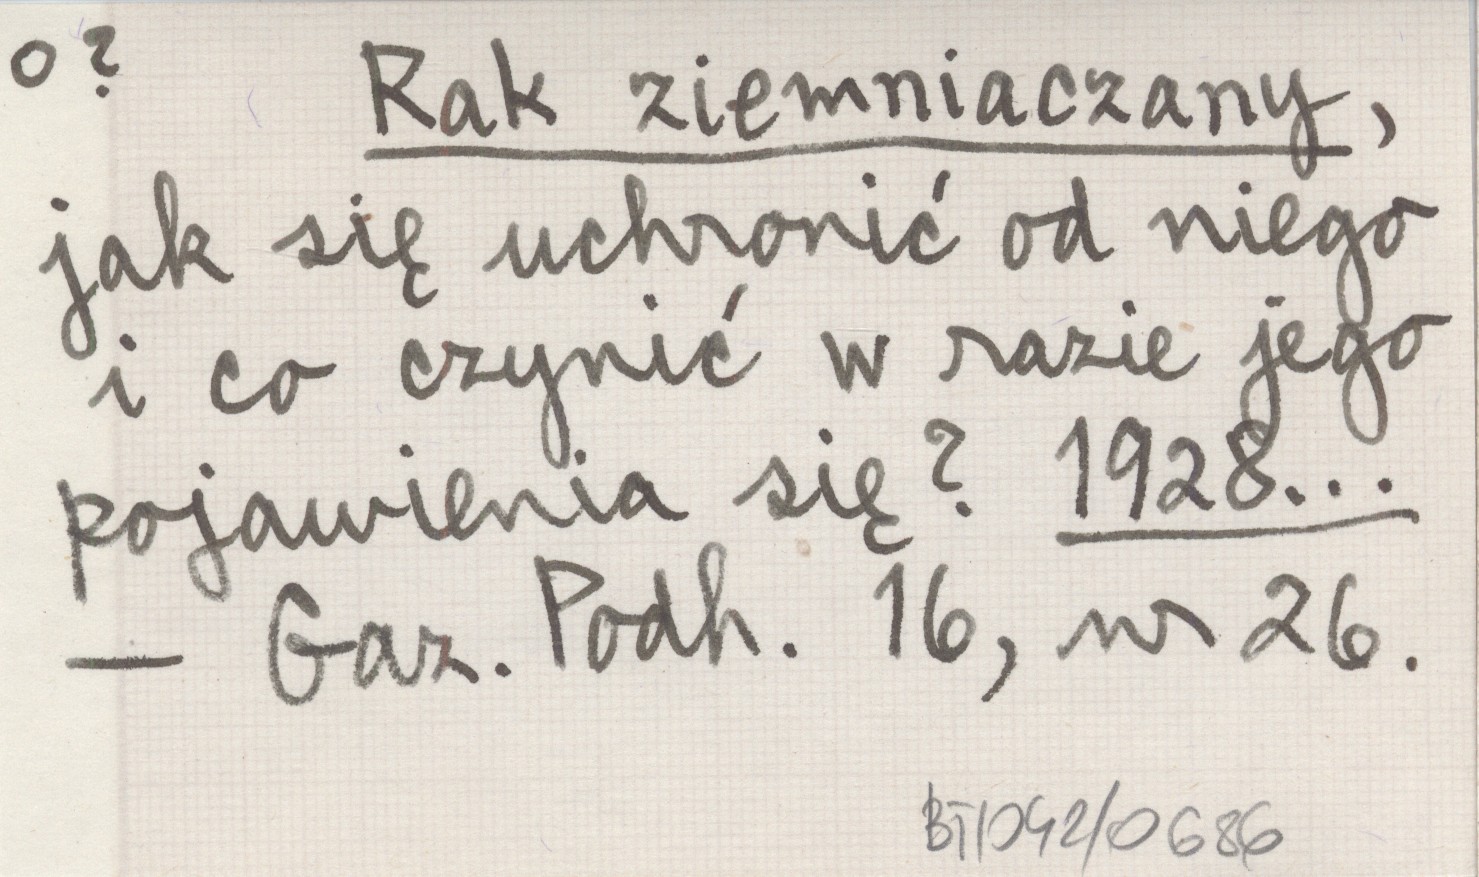 o ?
Rak ziemniaczany,
jak się uchronić od niego
i co czynić w razie jego
pojawienia się? 1928...
— Gaz. Podh. 16, nr 26.
BT/042/0686